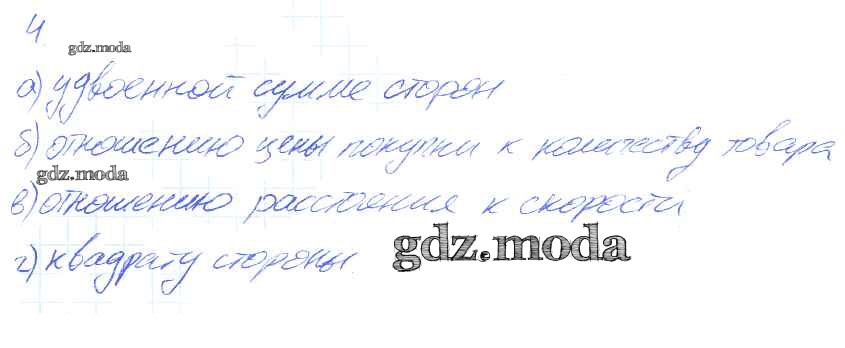 4
gdz.moda
а) удвоенной сумме сторон
б) отношению цены покупки к количеству товара
gdz.moda
в) отношению расстояния к скорости
gdz.moda
г) квадрату стороны